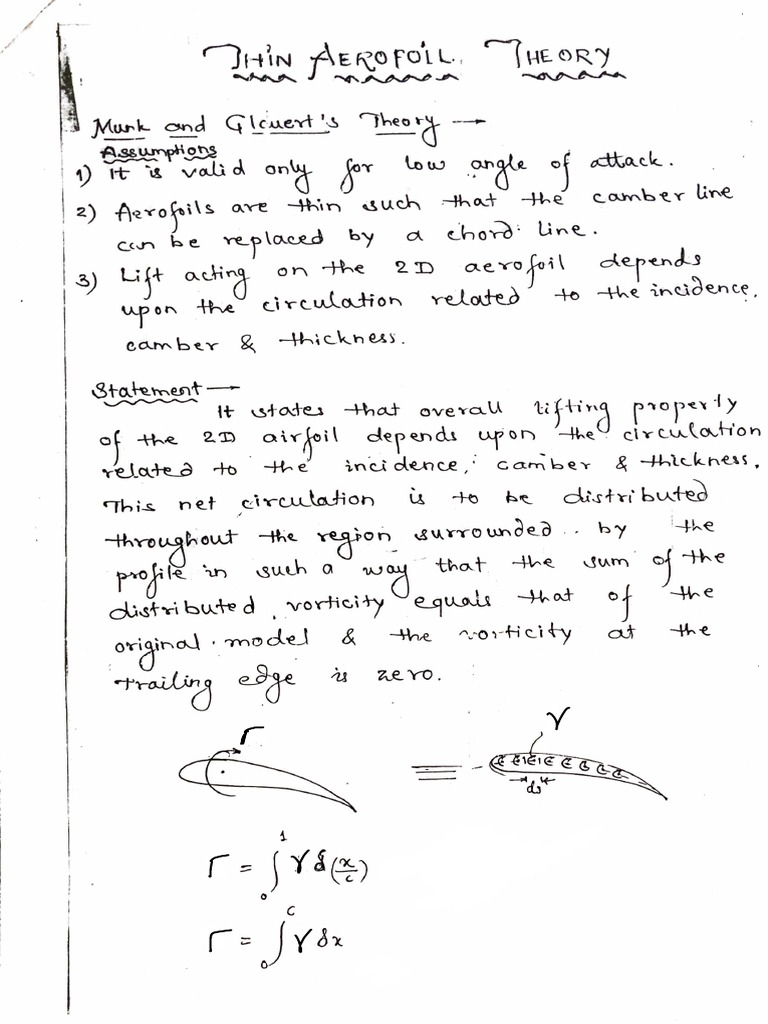 THIN AEROFOIL THEORY
Munk and Glauert's Theory →
Assumptions
1) It is valid only for low angle of attack.
2) Aerofoils are thin such that the camber line
can be replaced by a chord line.
3) Lift acting on the 2D aerofoil depends
upon the circulation related to the incidence,
camber & thickness.
Statement →
It states that overall lifting property
of the 2D airfoil depends upon the circulation
related to the incidence, camber & thickness.
This net circulation is to be distributed
throughout the region surrounded by the
profile in such a way that the sum of the
distributed vorticity equals that of the
original model & the vorticity at the
trailing edge is zero.
Γ ≡ γ
ds
Γ = ∫₀¹ γ δ(x/c)
Γ = ∫₀ᶜ γ δx